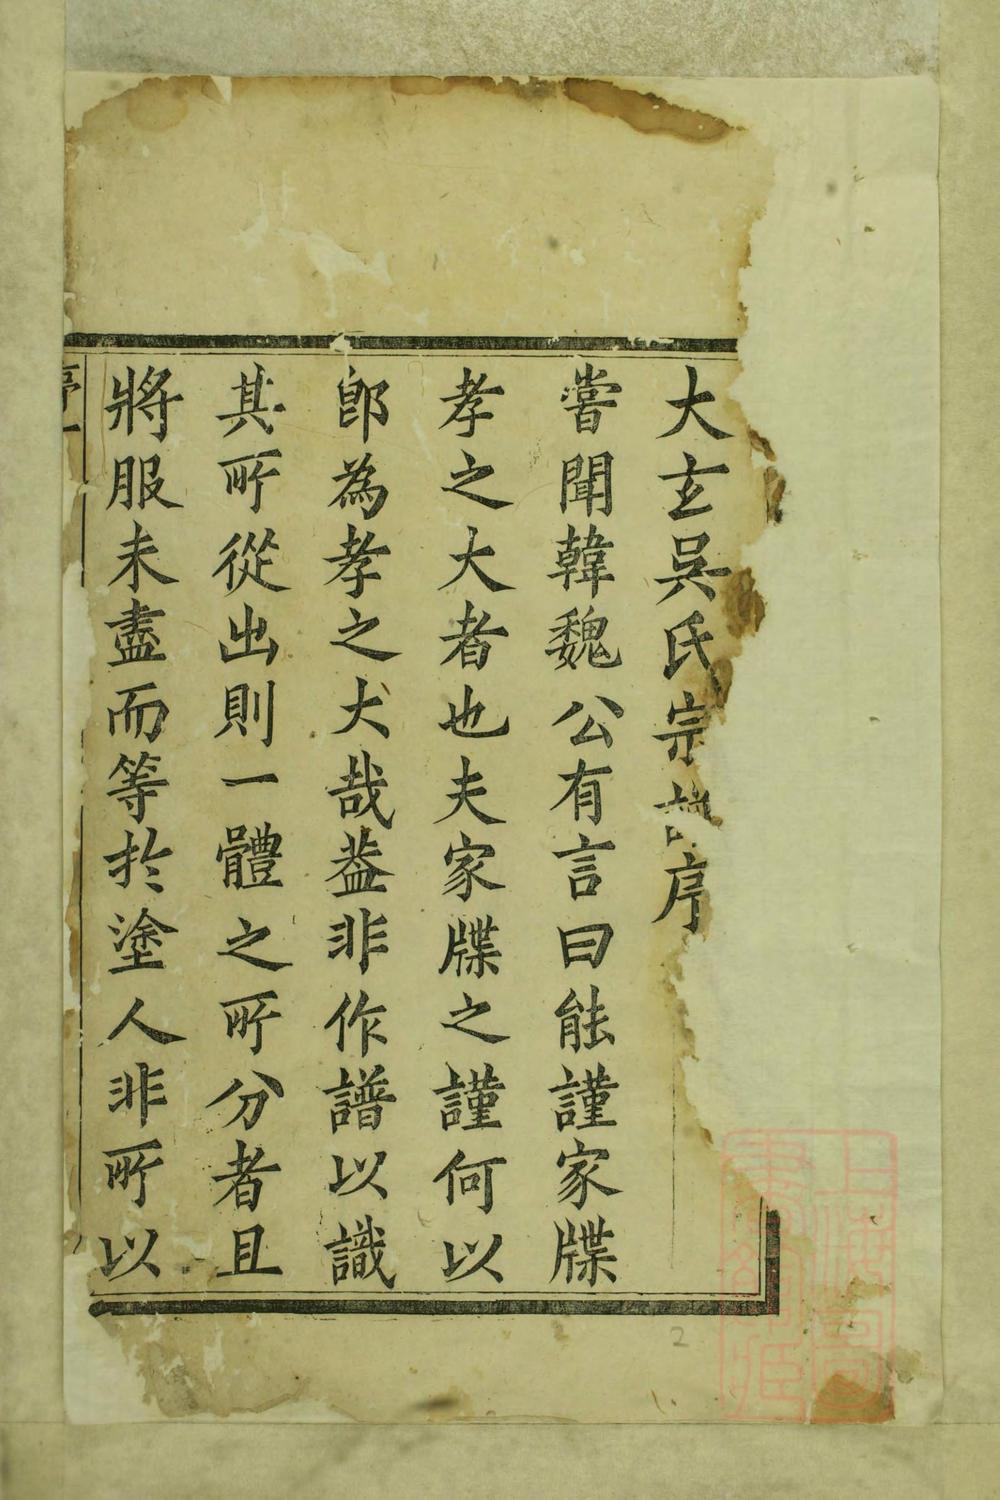 大玄吳氏宗譜序
嘗聞韓魏公有言曰能謹家牒
孝之大者也夫家牒之謹何以
郎為孝之大哉葢非作譜以識
其所從出則一體之所分者且
將服未盡而等於塗人非所以
序一
2